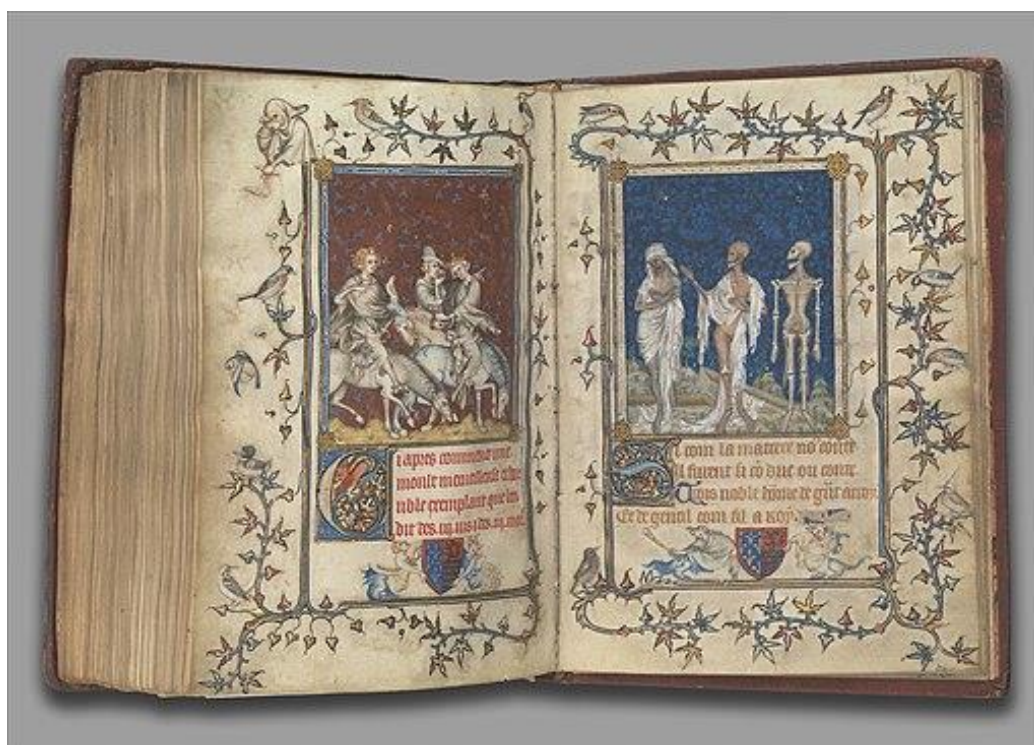 i apres commence une
moult merveilleuse et
noble exemplaire que len
dit des .iij. mors des .iij.
i com la matiere nos conte
Il furent si co duc ou conte
Trois noble home de
Et de gentil com fil a roy.